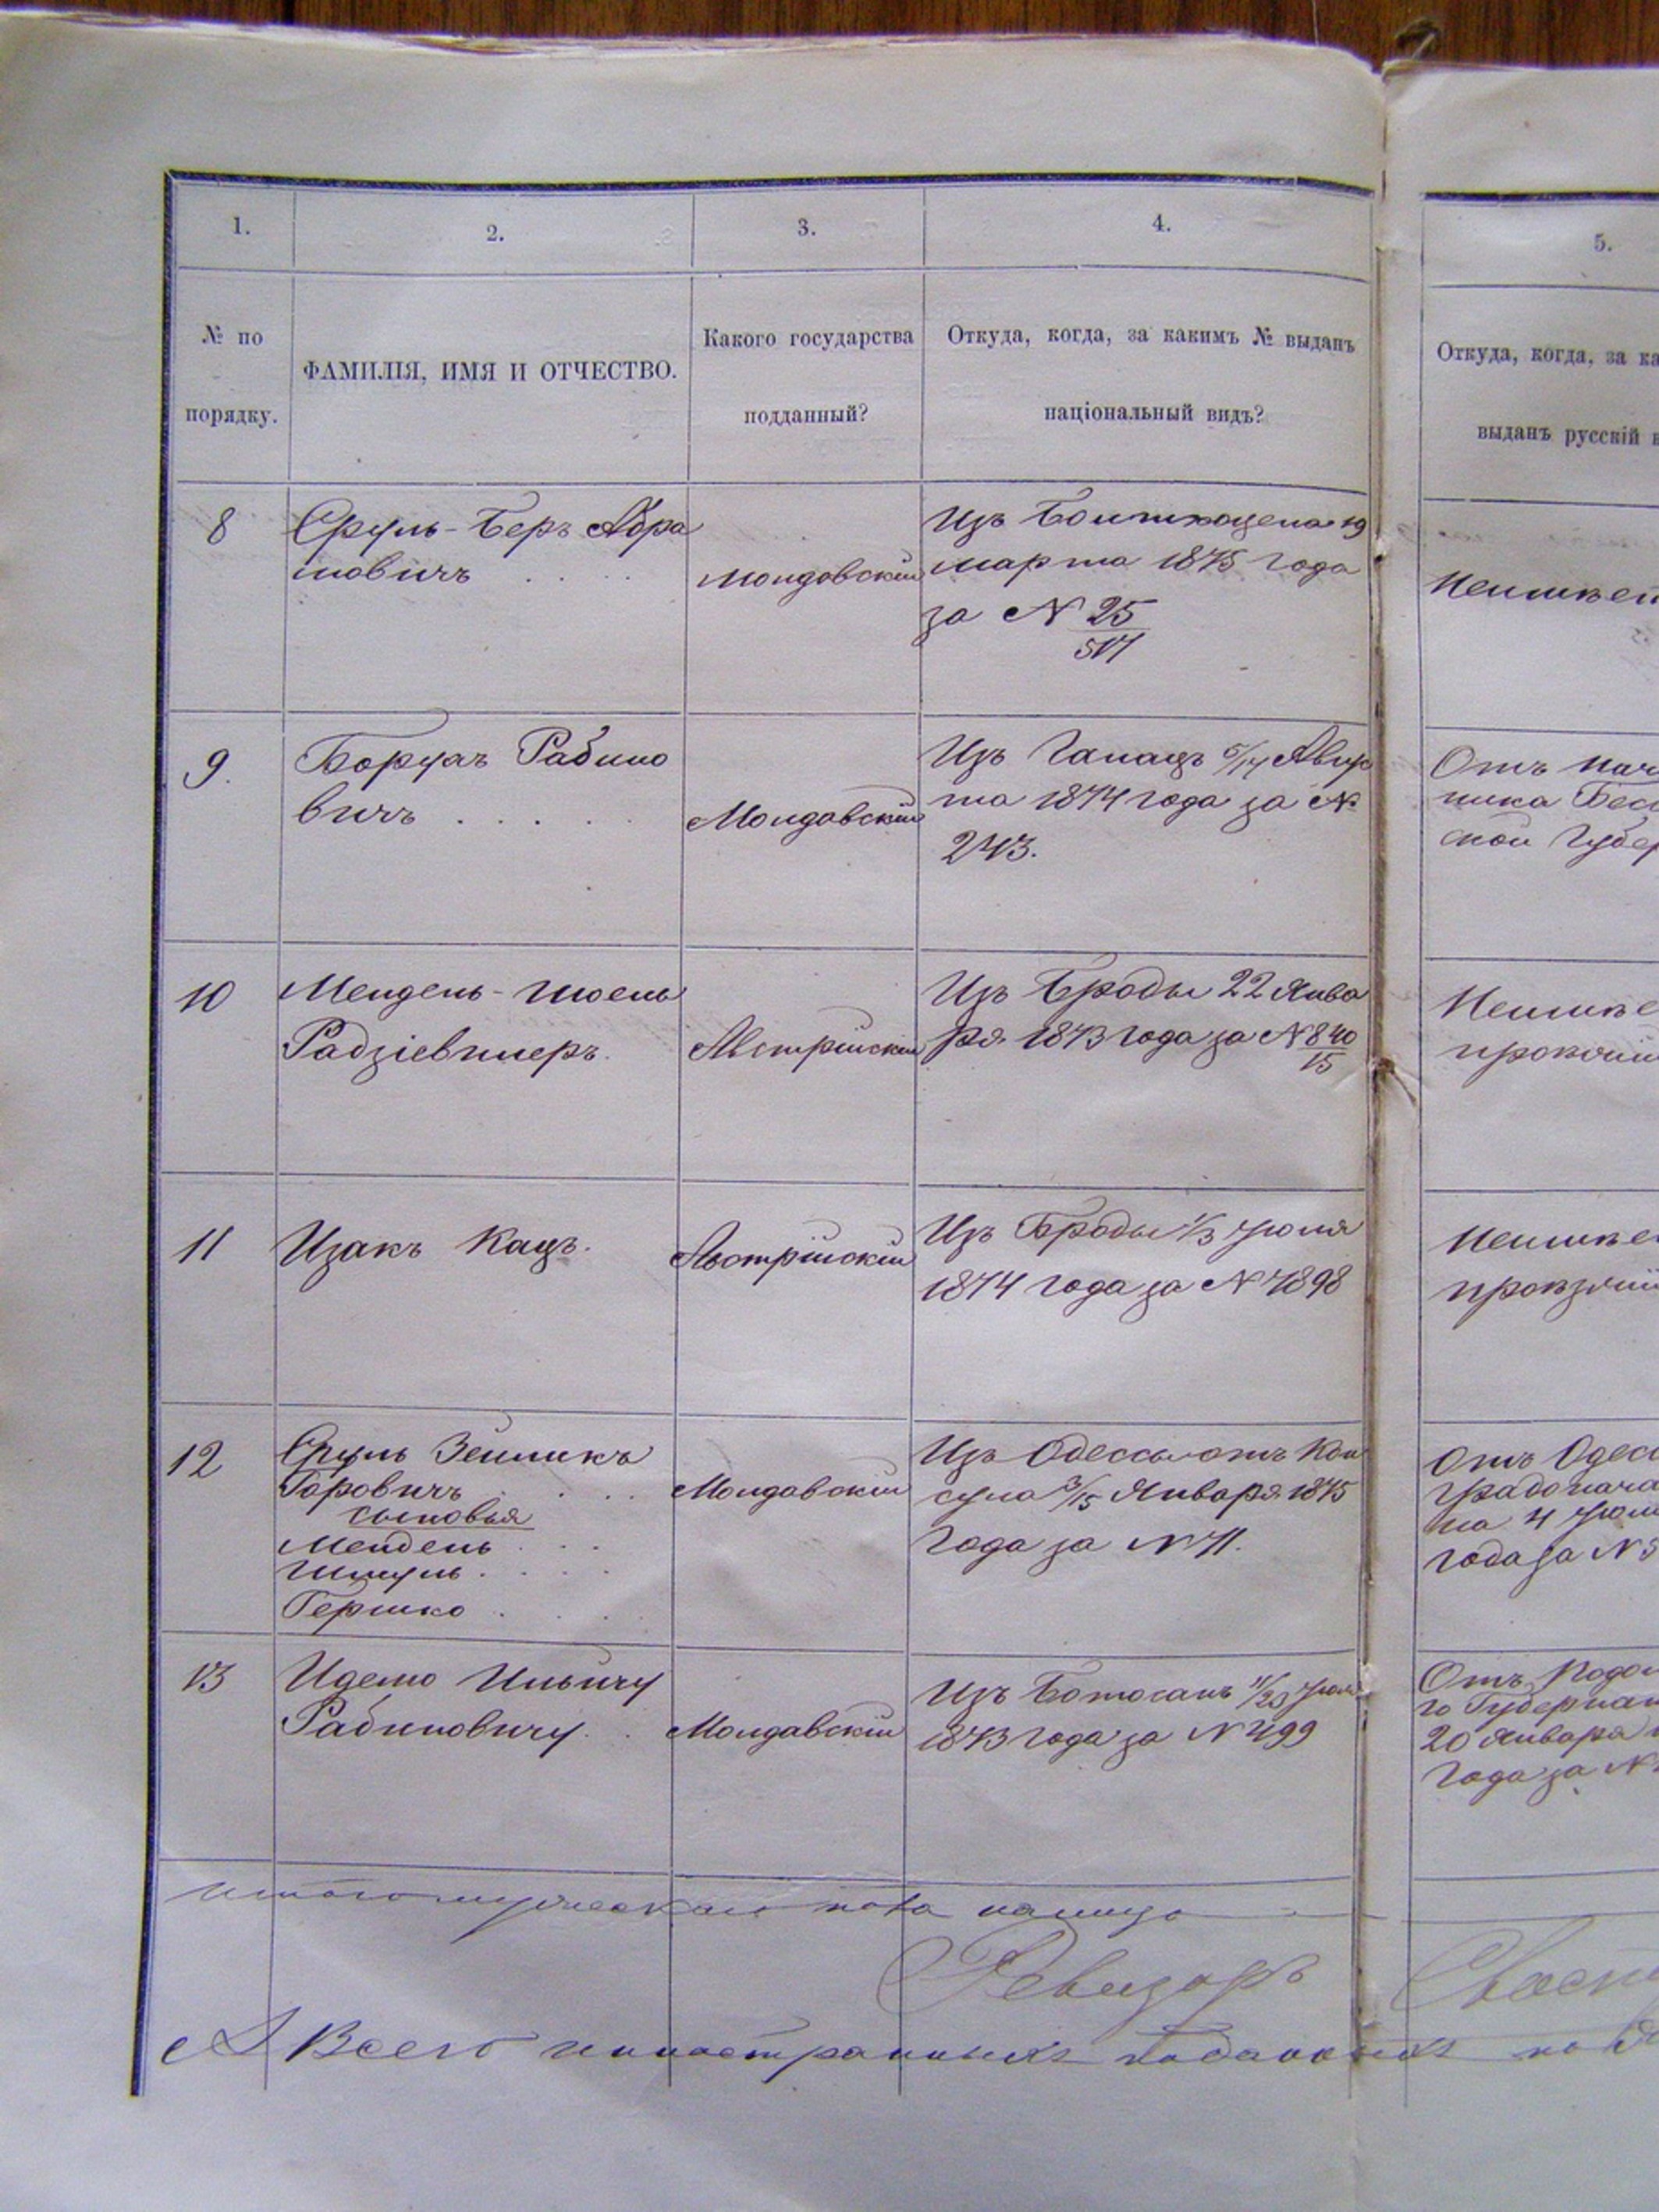 1.
2.
3.
4.
5.
№ по
порядку.
ФАМИЛІЯ, ИМЯ И ОТЧЕСТВО.
Какого государства
подданный?
Откуда, когда, за какимъ № выданъ
національный видъ?
Откуда, когда, за ка
выданъ русскій
8
Сруль-Беръ Абра
мовичъ . . . .
Молдовскій
Изъ
марта 1875 года
за № 25
517
Неимѣет
9.
Борухъ Рабино
вичъ . . . . .
Молдавскій
Изъ Галацъ Авгус
та 1874 года за №
243.
Отъ Нач
ника Бес
ской Губер
10
Мендель-Шоель
Радзівиллеръ.
Австрійскій
Изъ Броды 22 Янва
ря 1873 года за № 840
15
Неимѣе
11
Изакъ Кацъ.
Австрійскій
Изъ Броды 1/3 Іюля
1874 года за № 7898
Неимѣе
12
Сруль Зейликъ
Горовичъ . . . .
сыновья
Мендель . . .
Шмуль . . . .
Гершко . . . .
Молдавскій
Изъ Одессы отъ Кон
сула 3/15 Января 1875
года за № 71.
Отъ Одесс
градонача
на 4 Іюл
года за №
13
Иделю Ильичу
Рабиновичу . .
Молдавскій
Изъ Ботошань 11/23 Іюля
1873 года за № 499
Отъ Подол
го Губернат
20 Января
года за №
итого мужескаго пола
Ревизоръ
А Всего иностранныхъ подданныхъ